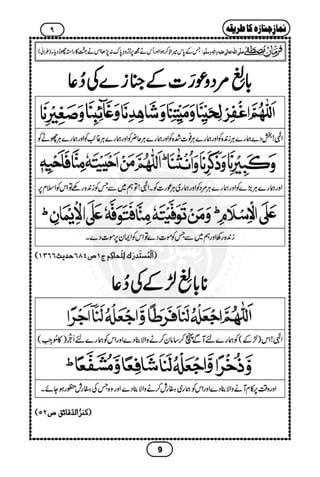 نماز جنازہ کا طریقہ ۹
فرمانِ مصطفےٰ صلی اللہ تعالیٰ علیہ واٰلہ وسلم: جس کے پاس میرا ذکر ہوا اور اُس نے مجھ پر دُرُودِ پاک نہ پڑھا اس نے جنت کا راستہ چھوڑ دیا۔ (طبرانی)
بالِغ مرد و عورَت کے جنازے کی دُعا
اَللّٰهُمَّ اغْفِرْ لِحَيِّنَا وَمَيِّتِنَا وَشَاهِدِنَا وَغَآئِبِنَا وَصَغِيْرِنَا
الٰہی! بخش دے ہمارے ہر زندہ کو اور ہمارے ہر فوت شدہ کو اور ہمارے ہر حاضر کو اور ہمارے ہر غائب کو اور ہمارے ہر چھوٹے کو
وَكَبِيْرِنَا وَذَكَرِنَا وَاُنْثٰنَا ؕ اَللّٰهُمَّ مَنْ اَحْيَيْتَهٗ مِنَّا فَاَحْيِهٖ
اور ہمارے ہر بڑے کو اور ہمارے ہر مرد کو اور ہماری ہر عورت کو۔ الٰہی! تو ہم میں سے جس کو زندہ رکھے تو اس کو اسلام پر
عَلَى الْاِسْلَامِ ؕ وَمَنْ تَوَفَّيْتَهٗ مِنَّا فَتَوَفَّهٗ عَلَى الْاِيْمَانِ ؕ
زندہ رکھ اور ہم میں سے جس کو موت دے تو اس کو ایمان پر موت دے۔
(اَلْمُسْتَدْرَك لِلْحاكِم ج۱ ص۶۸۴ حدیث ۱۳۶۶)
نابالِغ لڑکے کی دُعا
اَللّٰهُمَّ اجْعَلْهُ لَنَا فَرَطًا وَّاجْعَلْهُ لَنَا اَجْرًا
الٰہی! اس (لڑکے) کو ہمارے لئے آگے پہنچ کر سامان کرنے والا بنا دے اور اس کو ہمارے لئے اَجر (کا مُوجِب)
وَّذُخْرًا وَّاجْعَلْهُ لَنَا شَافِعًا وَّمُشَفَّعًا ؕ
اور وقت پر کام آنے والا بنا دے اور اس کو ہماری سفارش کرنے والا بنا دے اور وہ جس کی سفارش منظور ہو جائے۔
(كنزُ الدَّقائق ص ۵۲)
9